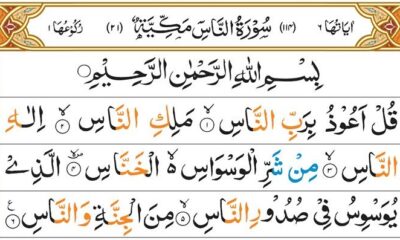 اٰیَاتُهَا ۶ (۱۱۴) سُوْرَةُ النَّاسِ مَكِّیَّةٌ (۲۱) رُكُوْعُهَا ۱
بِسْمِ اللّٰهِ الرَّحْمٰنِ الرَّحِیْمِ
قُلْ اَعُوْذُ بِرَبِّ النَّاسِ ۙ﴿۱﴾ مَلِكِ النَّاسِ ۙ﴿۲﴾ اِلٰهِ
النَّاسِ ۙ﴿۳﴾ مِنْ شَرِّ الْوَسْوَاسِ ۙ۬ الْخَنَّاسِ ﴿۴﴾ الَّذِیْ
یُوَسْوِسُ فِیْ صُدُوْرِ النَّاسِ ۙ﴿۵﴾ مِنَ الْجِنَّةِ وَ النَّاسِ ﴿۶﴾ ع